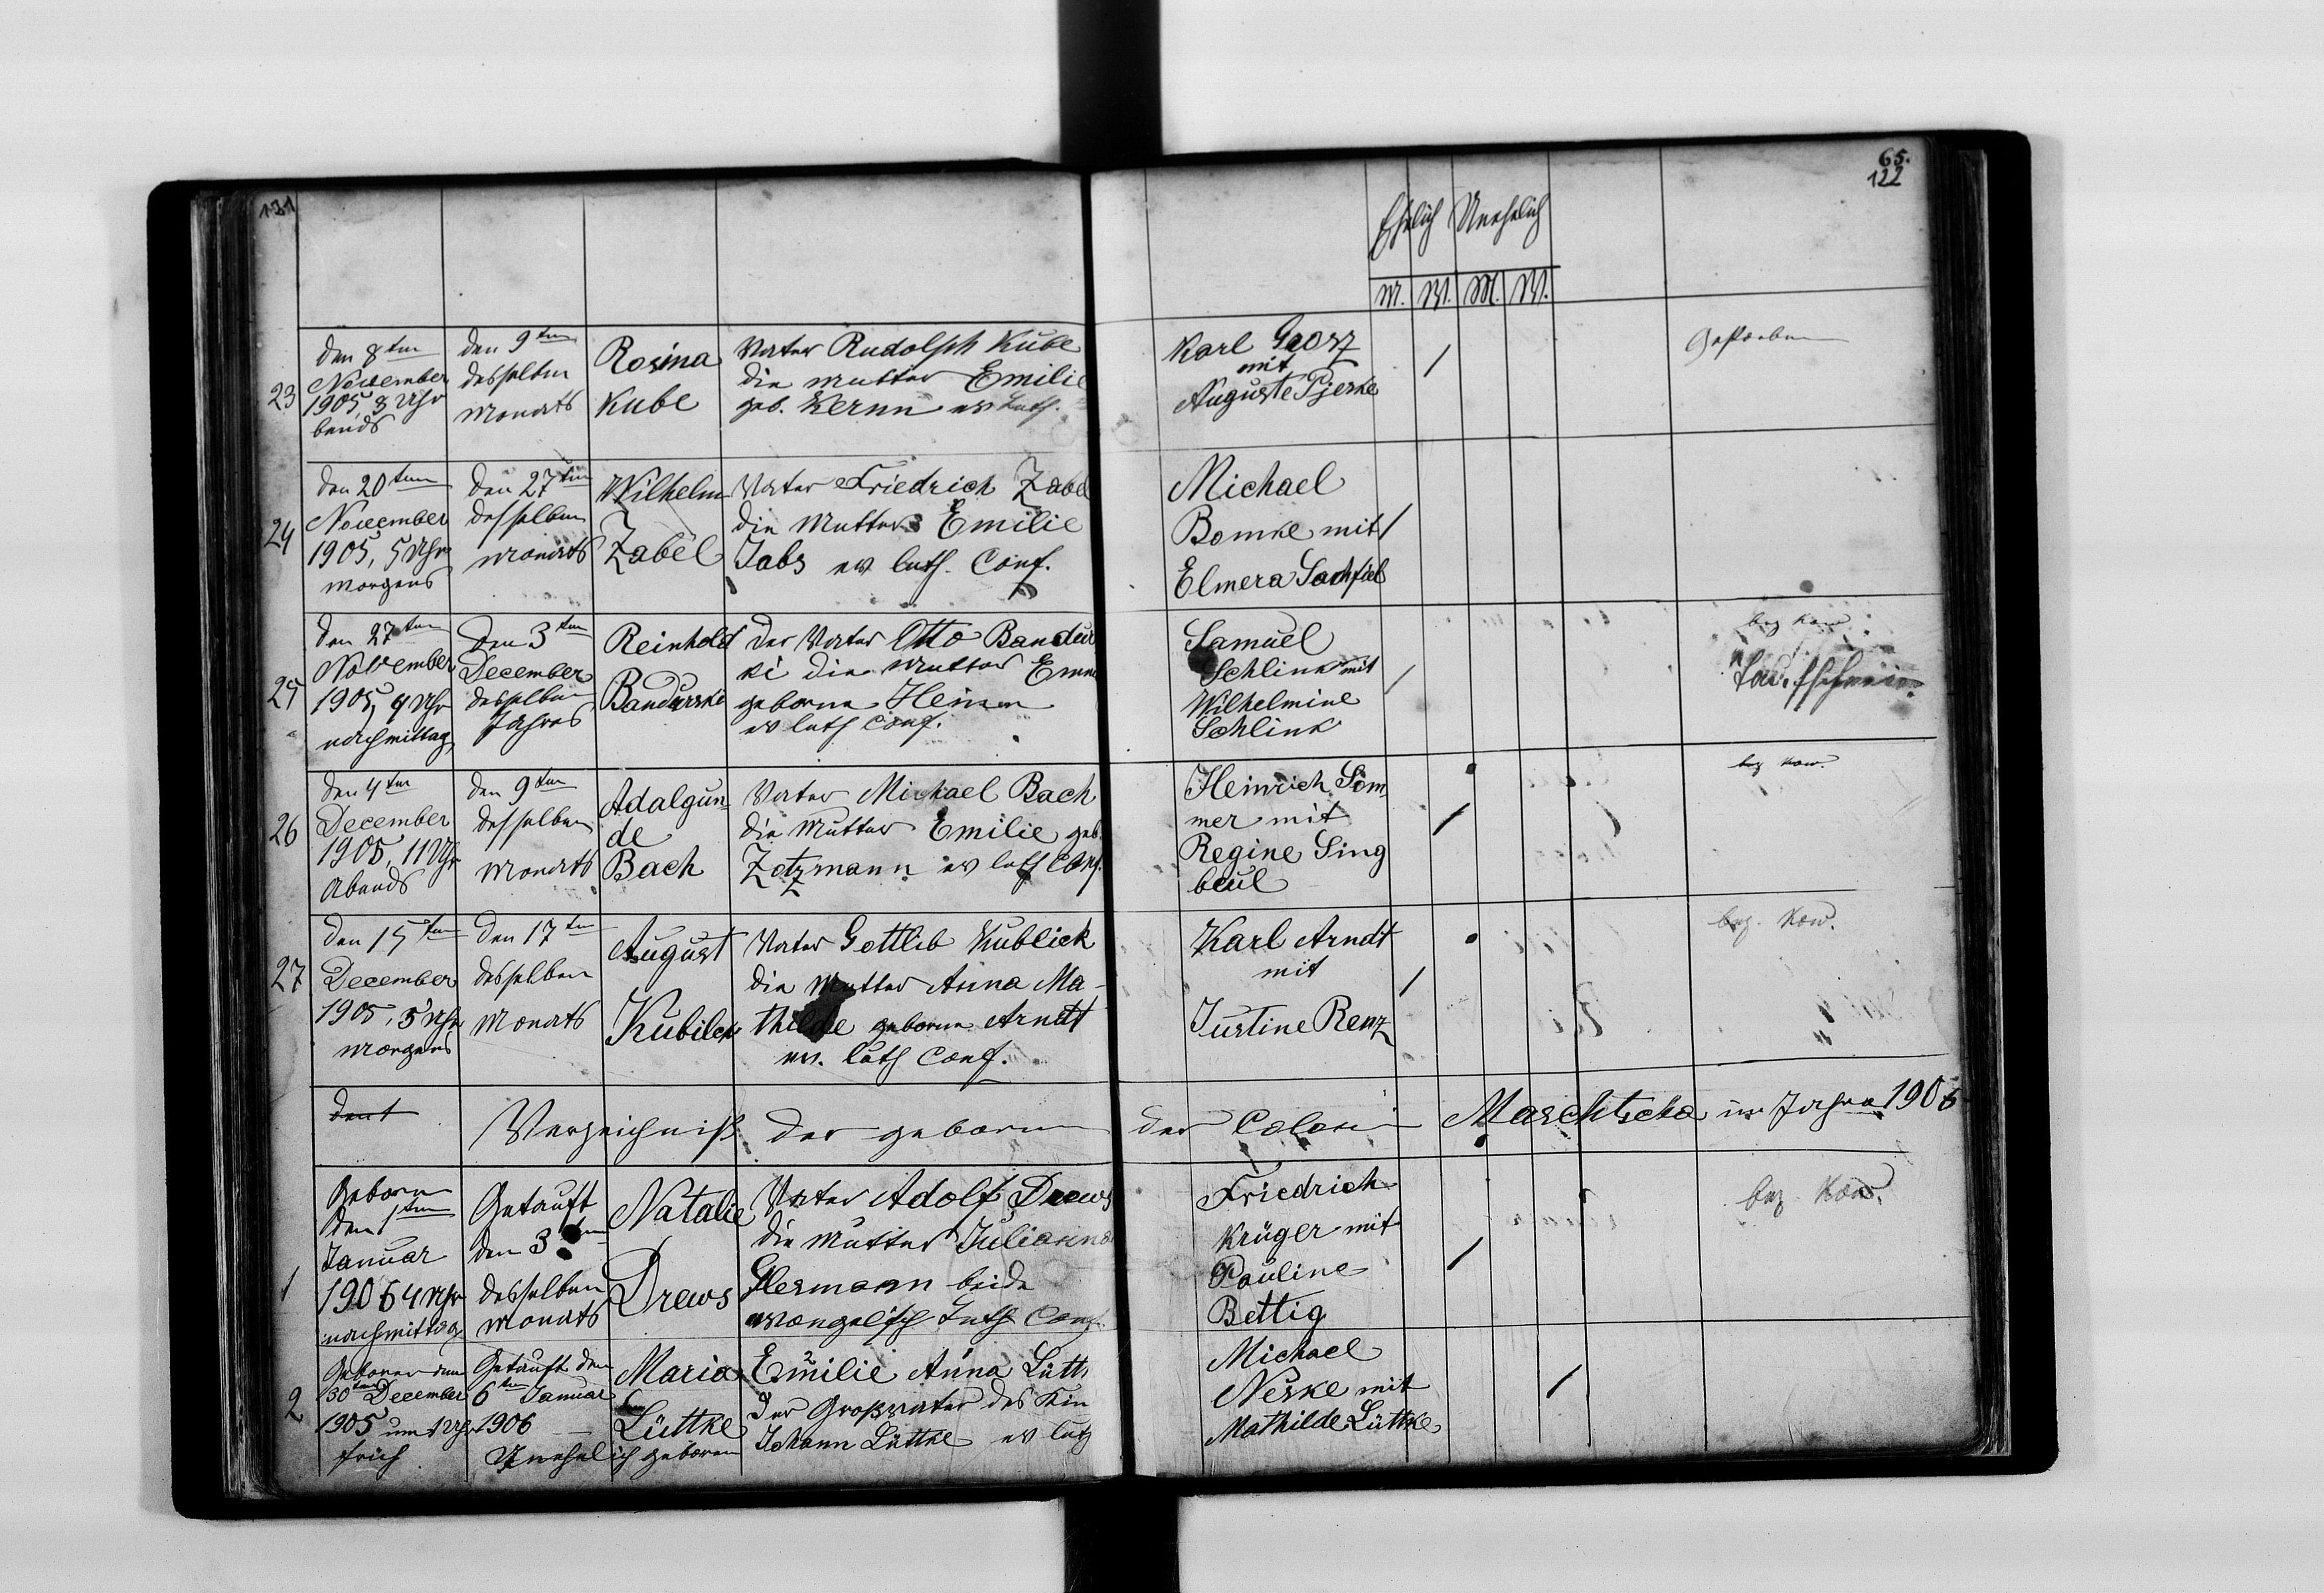 121
65.
122
Ehelich Unehelich
M. W. M. W.
23
den 8ten
November
1905, 8 Uhr
bends
den 9ten
desselben
Monats
Rosina
Kube
Vater Rudolph Kube
die Mutter Emilie
geb. Kernn ev Luth.
Karl Grosz
mit
Auguste Pjeske
/
Gestorben
24
den 20ten
November
1905, 5 Uhr
Morgens
den 27ten
desselben
Monats
Wilhelm
Zabel
Vater Friedrich Zabel
die Mutter Emilie
Jabs ev luth. Conf.
Michael
Bomke mit
Elmera
/
25
den 27ten
November
1905, 4 Uhr
nachmittag
den 3ten
December
desselben
Jahres
Reinhold
Bandurski
der Vater Otto Bandur
ki die Mutter
geborne Heimann
ev luth Conf.
Samuel
Schlink mit
Wilhelmine
Schlink
/
bez Kow
Taufschein
26
den 4ten
December
1905, 11 Uhr
Abends
den 9ten
desselben
Monats
Adalgun-
de
Bach
Vater Michael Bach
die Mutter Emilie geb
Zotzmann ev luth Conf.
Heinrich Söm
mer mit
Regine Sing
beul
/
bez Kow.
27
den 15ten
December
1905, 5 Uhr
Morgens
den 17ten
desselben
Monats
August
Kubilck
Vater Gottlib Kublick
die Mutter Anna Ma-
thilde geborne Arndt
ev. luth Conf.
Karl Arndt
mit
Justine Renz
/
bez. Kow.
Verzeichniß der geboren der Coloni Maschtscha im Jahre 1906
1
Geboren
den 1ten
Januar
1906 4 Uhr
nachmittag
Getauft
den 3ten
desselben
Monats
Natalie
Drews
Vater Adolf Drews
die Mutter Julianna
Hermann beide
evangelisch Luth Conf.
Friedrich
Krüger mit
Pauline
Bettig
/
bez. Kow.
2
Geboren den
30ten December
1905 um 1 Uhr
früh
Getauft den
6ten Januar
1906
Unehelich geboren
Maria
Lüttke
Emilie Anna Lütt
Der Großvater des Kin
Johann Lüttke ev luth
Michael
Neske mit
Mathilde Lüttke
/